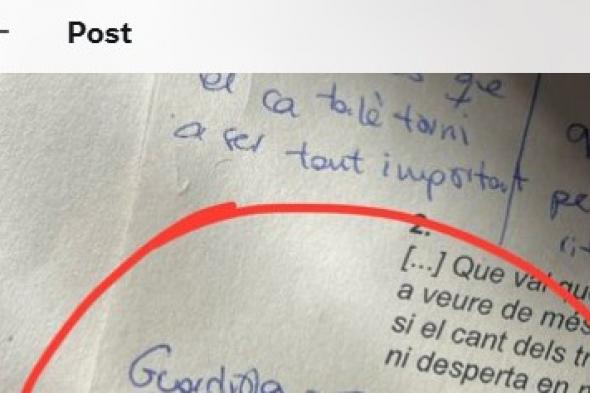 Post
que
el català torni
a ser tant important
pe
2.
[...] Que val qu
a veure de més
si el cant dels tr
ni desperta en
Guardiola